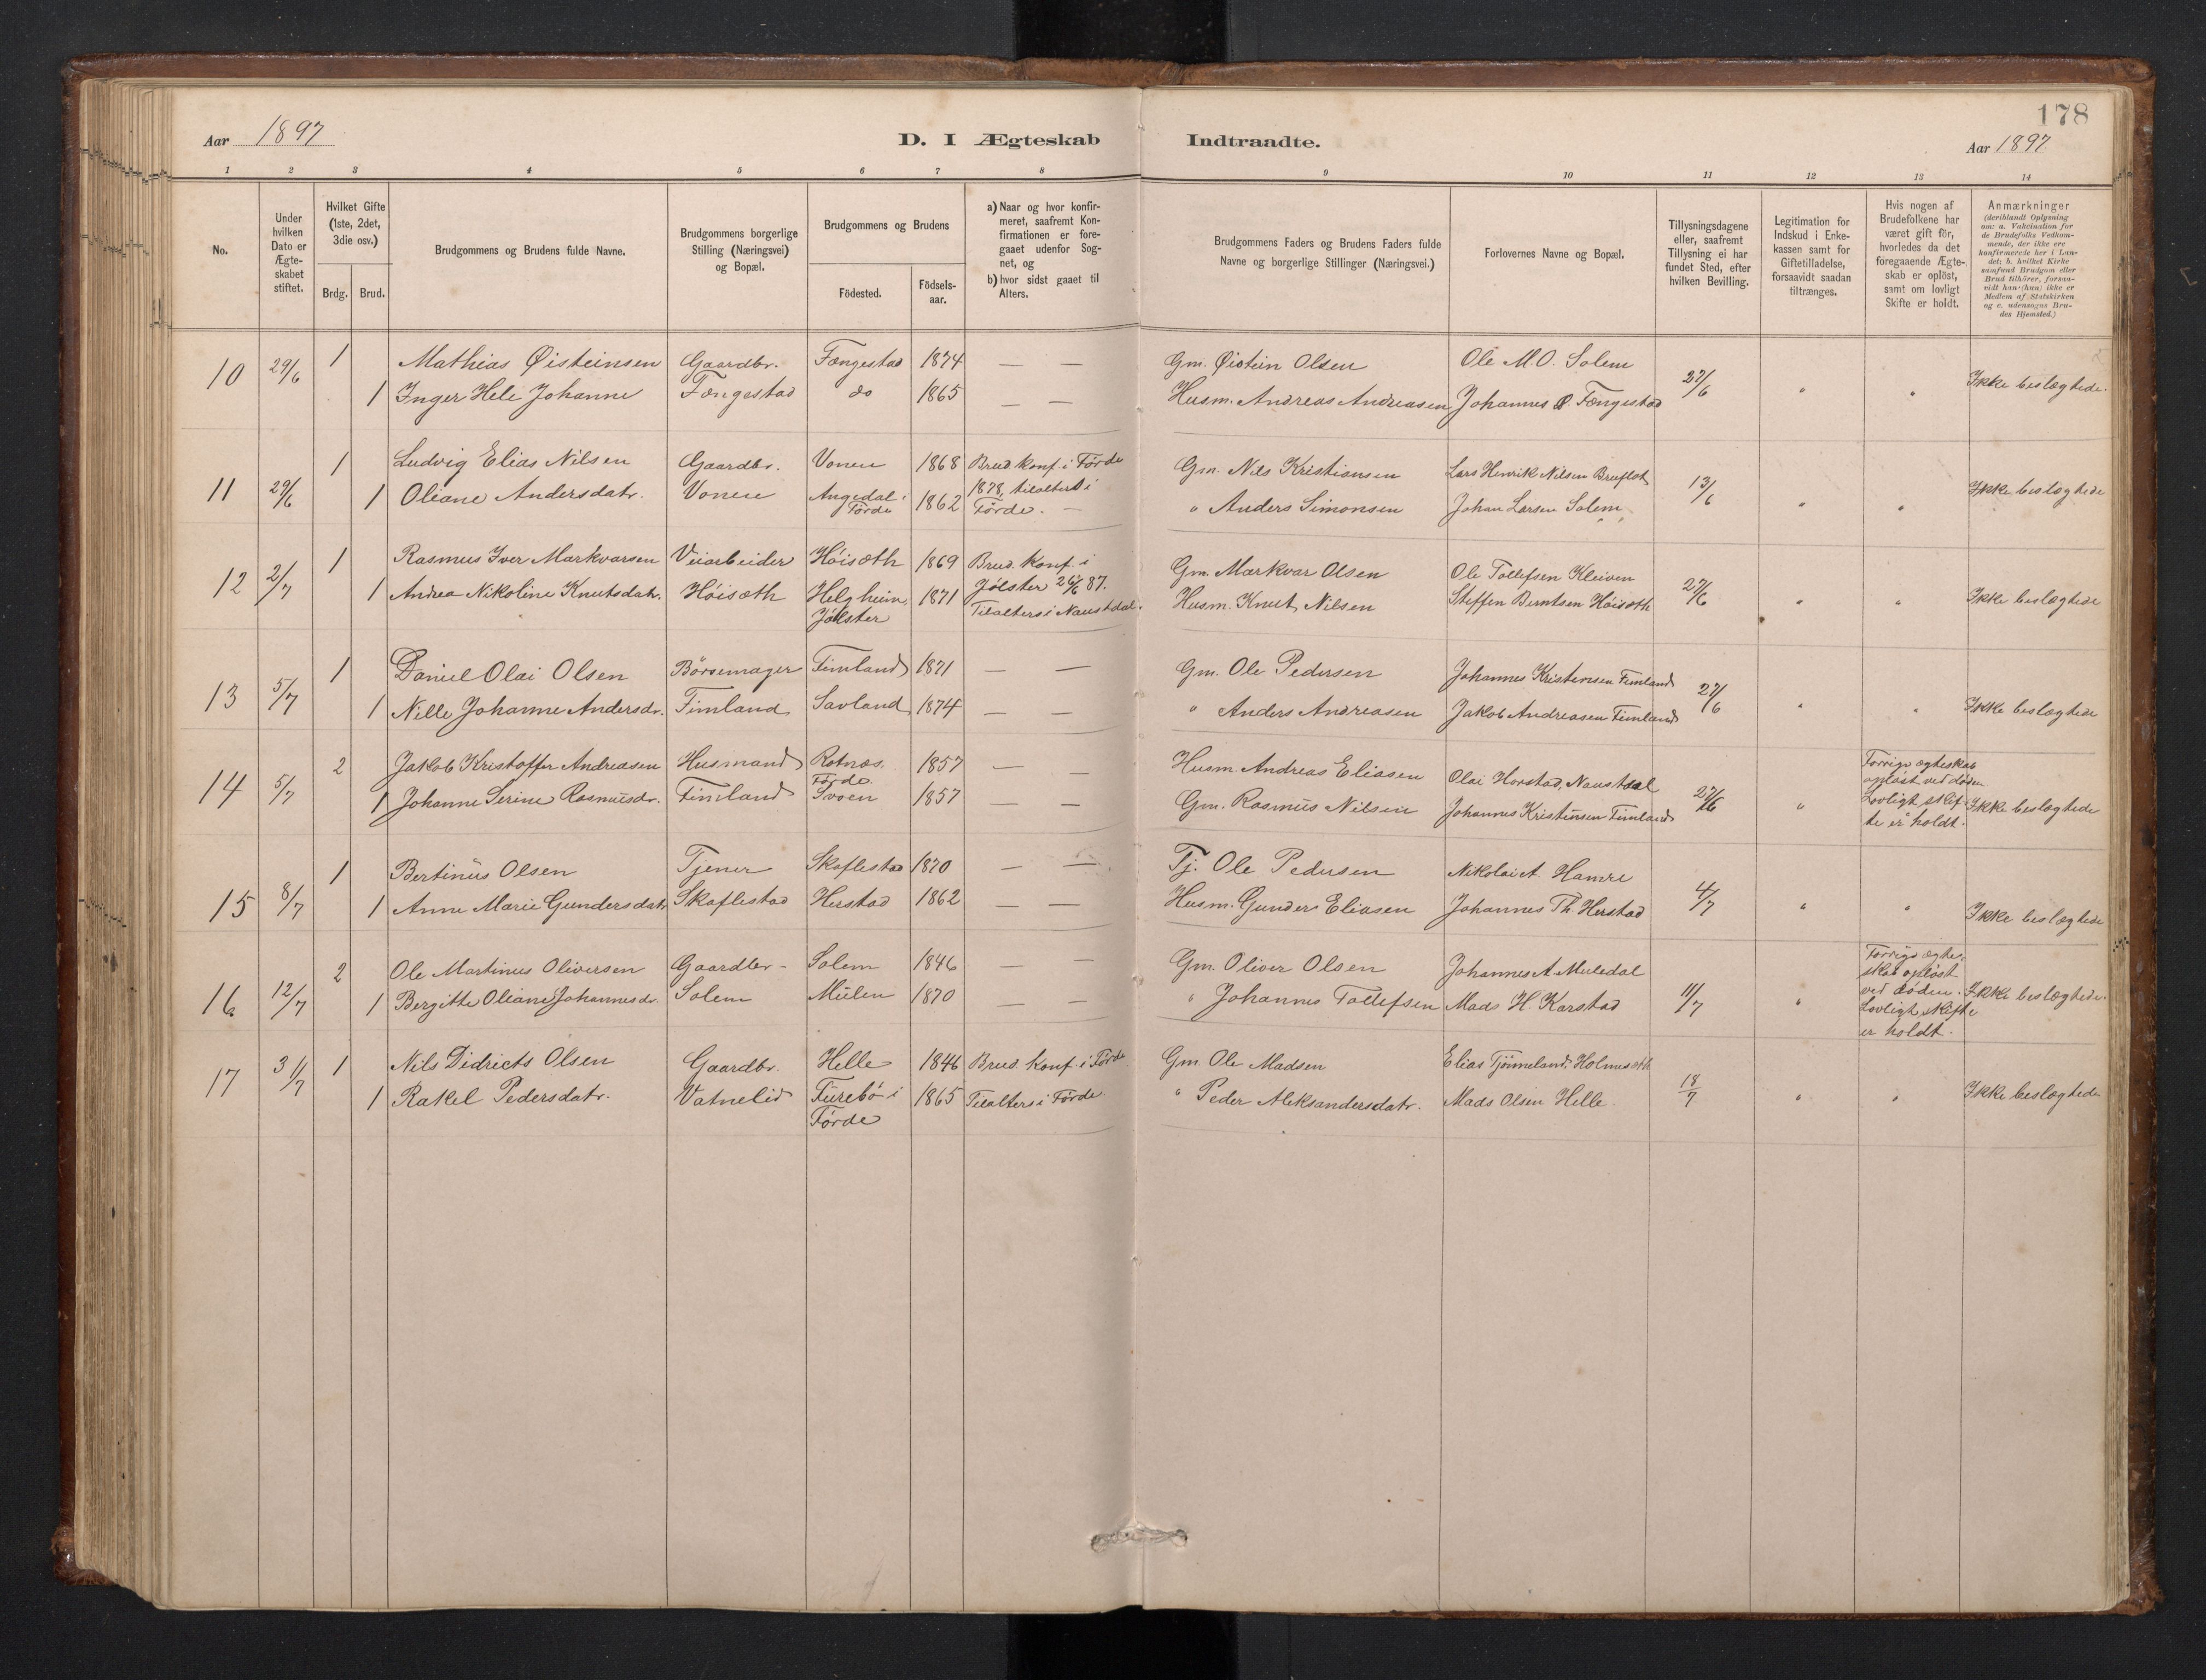 178
Aar 1897
D. I Ægteskab Indtraadte.
Aar 1897.
1 2 3 4 5 6 7 8 9 10 11 12 13 14
No.
Under hvilken Dato er Ægteskabet stiftet.
Hvilket Gifte (1ste, 2det, 3die osv.)
Brdg. Brud.
Brudgommens og Brudens fulde Navne.
Brudgommens borgerlige Stilling (Næringsvei) og Bopæl.
Brudgommens og Brudens
Födested.
Födselsaar.
a) Naar og hvor konfirmeret, saafremt Konfirmationen er foregaaet udenfor Sognet, og
b) hvor sidst gaaet til Alters.
Brudgommens Faders og Brudens Faders fulde Navne og borgerlige Stillinger (Næringsvei.)
Forlovernes Navne og Bopæl.
Tillysningsdagene eller, saafremt Tillysning ei har fundet Sted, efter hvilken Bevilling.
Legitimation for Indskud i Enkekassen samt for Giftetilladelse, forsaavidt saadan tiltrænges.
Hvis nogen af Brudefolkene har været gift för, hvorledes da det foregaaende Ægteskab er oplöst, samt om lovligt Skifte er holdt.
Anmærkninger
(deriblandt Oplysning om: a. Vakcination for de Brudefolks Vedkommende, der ikke ere konfirmerede her i Landet; b. hvilket Kirkesamfund Brudgom eller Brud tilhörer, forsaavidt han (hun) ikke er Medlem af Statskirken og c. udensogns Brudes Hjemsted.)
10 29/6 1 Mathias Øisteinsen Gaardbr. Fængestad 1874 — — Gm. Øistein Olsen Ole M. O. Solem 27/6 " " Ikke beslægtede.
1 Inger Hele Johanne Fængestad do 1865 — — Husm. Andreas Andreasen Johannes P. Fængestad
11 29/6 1 Ludvig Elias Nilsen Gaardbr. Vonen 1868 Brud konf. i Førde Gm. Nils Kristiansen Lars Henrik Nilsen Bruflot 13/6 " " Ikke beslægtede
1 Oliane Andersdatr. Vonen Angedal i Førde 1862 1878, tilalters i Førde. — " Anders Simonsen Johan Larsen Solem
12 2/7 1 Rasmus Iver Markvarsen Veiarbeider Høisæth 1869 Brud. konf. i Gm. Markvar Olsen Ole Tollefsen Kleiven 27/6 " " Ikke beslægtede
1 Andrea Nikoline Knutsdatr. Høisæth Helgheim, Jølster 1871 Jølster 26/6 87. Tilalters i Naustdal. Husm. Knut Nilsen Steffen Berntsen Høisæth
13 5/7 1 Daniel Olai Olsen Børsemager Fimland 1871 — — Gm. Ole Pedersen Johannes Kristensen Fimland 27/6 " " Ikke beslægtede
1 Nille Johanne Andersdr. Fimland Savland 1874 — — " Anders Andreasen Jakob Andreasen Fimland
14 5/7 2 Jakob Kristoffer Andreasen Husmand Rotnes. Førde. 1857 — — Husm. Andreas Eliasen Olai Horstad, Naustdal 27/6 " Forrige ægteskab opløst ved døden Lovligt skifte er holdt. Ikke beslægtede
1 Johanne Serine Rasmusdr. Fimland Svoen 1857 — — Gm. Rasmus Nilsen Johannes Kristensen Fimland
15 8/7 1 Bertinus Olsen Tjener Skaflestad 1870 — — Tj. Ole Pedersen Nikolai A. Hamre 4/7 " " Ikke beslægtede
1 Anne Marie Gundersdatr Skaflestad Herstad 1862 — — Husm. Gunder Eliasen Johannes Th. Herstad
16 12/7 2 Ole Martinus Oliversen Gaardbr- Solem 1846 — — Gm. Oliver Olsen Johannes A. Muledal 11/7 " Forrige ægteskab opløst ved døden. Lovligt skifte er holdt. Ikke beslægtede.
1 Bergitte Oliane Johannesdr. Solem Mulen 1870 — — " Johannes Tollefsen Mads H. Karstad
17 31/7 1 Nils Didrects Olsen Gaardbr. Helle 1846 Brud. konf. i Førde Gm. Ole Madsen Elias Tjønneland, Holmesæth 18/7 " " Ikke beslægtede
1 Rakel Pedersdatr. Vatnelid Furebø i Førde 1865 Tilalters i Førde. " Peder Aleksandersdatr. Mads Olsen Helle.